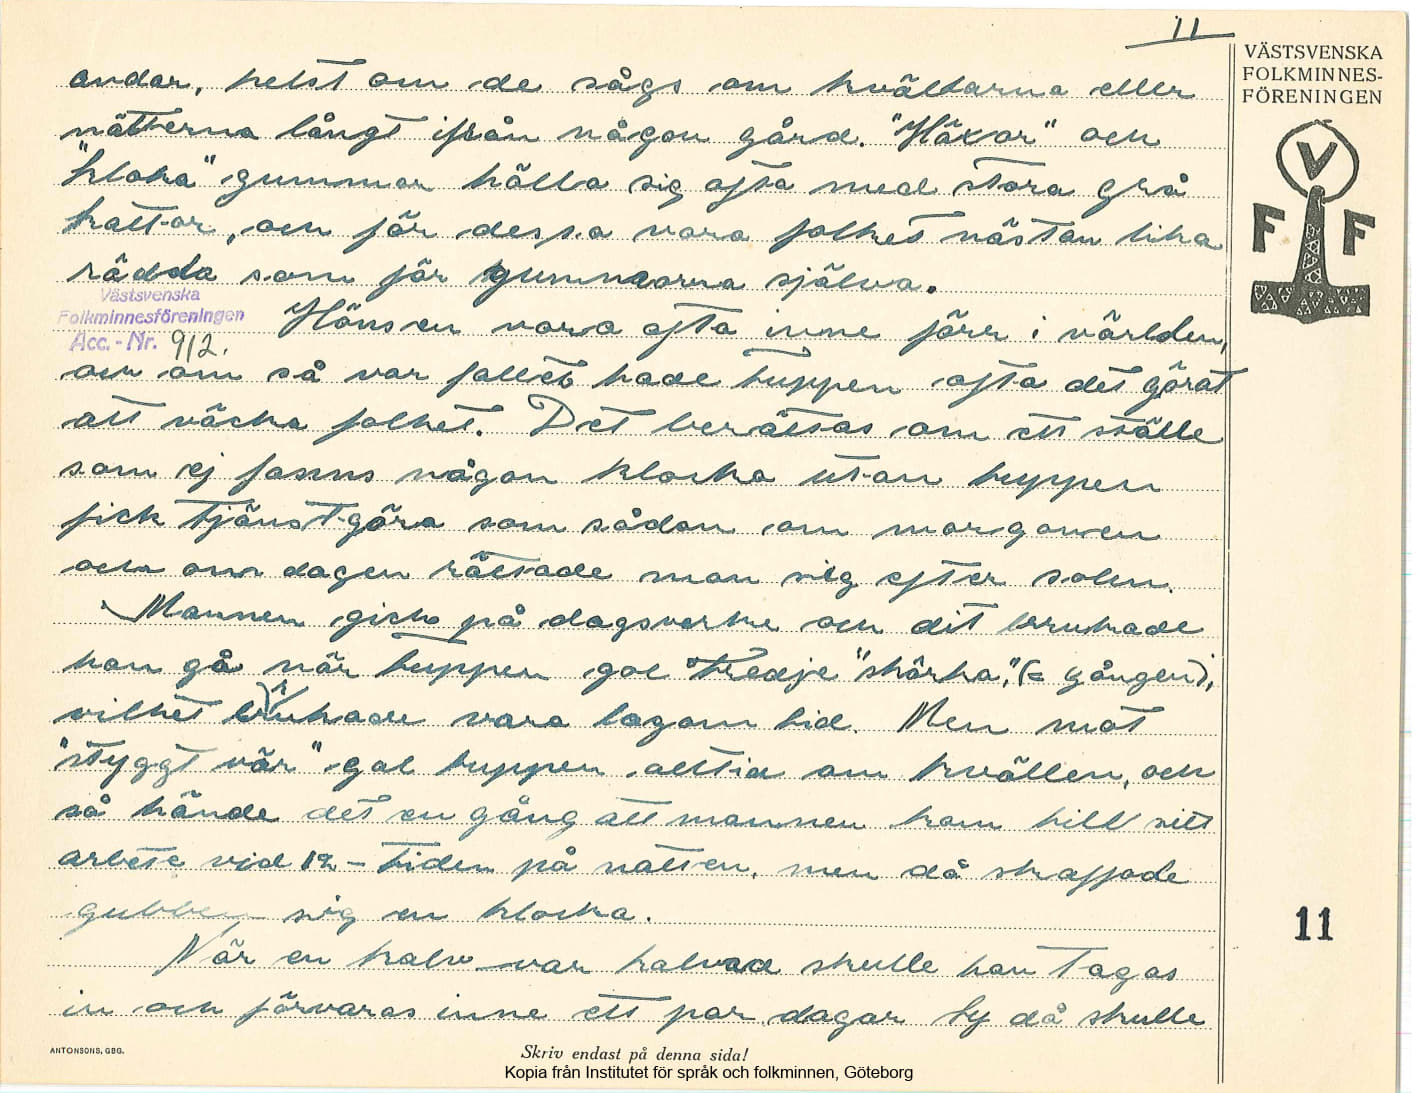 11
VÄSTSVENSKA
FOLKMINNES-
FÖRENINGEN
V
F F
andar, helst om de sågs om kvällarna eller
nätterna långt ifrån någon gård. "Häxor" och
"kloka" gummor hålla sig ofta med stora grå
kattor, och för dessa vara folket nästan lika
rädda som för gummorna själva.
Västsvenska
Folkminnesföreningen
Acc.-Nr. 912.
Hönsen vora ofta inne förr i världen,
och om så var fallet hade tuppen ofta det görat
att väcka folket. Det berättas om ett ställe
som ej fanns någon klocka utan tuppen
fick tjänstgöra som sådan om morgonen
och om dagen rättade man sig efter solen.
Mannen gick på dagsverke och dit brukade
han gå när tuppen gol tredje "skörka", (= gången),
vilket brukade vara lagom tid. Men mot
"styggt vär" gol tuppen alltid om kvällen, och
så hände det en gång att mannen kom till sitt
arbete vid 12-tiden på natten, men då skaffade
gubben sig en klocka.
När en kalv var kalvad skulle han tagas
in och förvaras inne ett par dagar ty då skulle
11
ANTONSONS, GBG.
Skriv endast på denna sida!
Kopia från Institutet för språk och folkminnen, Göteborg